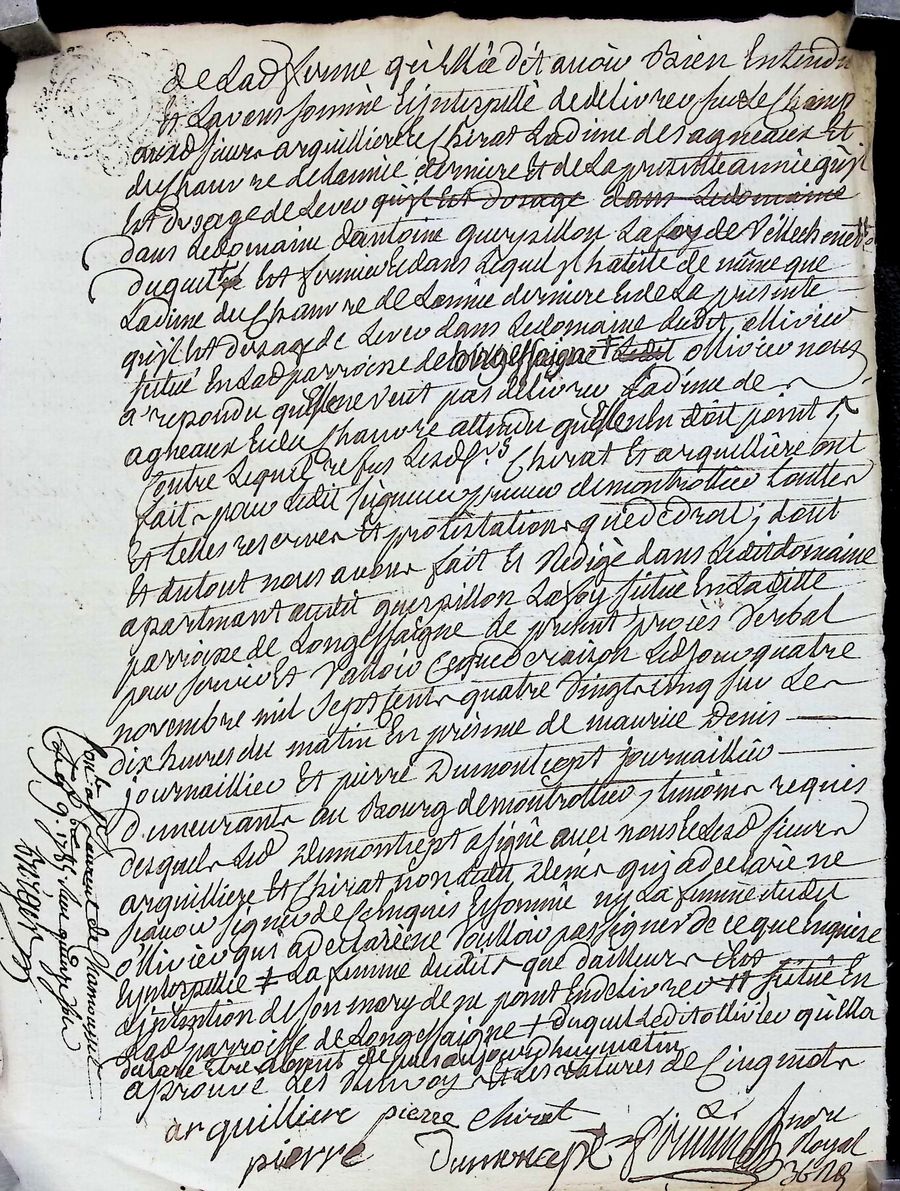 de Lad femme qu'Elle a dit avoir Bien Entendu
Et Lavons sommé Et Interpellé de delivrer sur Le Champ
auxd sieurs arquilliere Et Chirat Ladime des agneaux Et
du Chanvre de Lannée derniere Et de La presente année qu'il
Est dusage de Lever qu'il Est dusage dans Ledomaine
dans Ledomaine dantoine guerpillon Lafoy de Villechenève
duquel Est fermier Et dans Lequel il habitte de même que
Ladime du Chanvre de Lannée derniere Et de La presente
qu'il Est dusage de Lever dans Ledomaine dudit ollivier
situé En Lad parroisse de Longessaigne + Ledit ollivier nous
a repondu qu'Elle ne veut pas delivrer Ladime de
agneaux Et du Chanvre attendu qu'Elle n'en doit point
Contre Lequel refus Lesd srs Chirat Et arquilliere ont
fait pour Ledit seigneur prieur de montrottier toutes
Et telles reserves Et protestations que de droit, dont
Et du tout nous avons fait Et Redigé dans Ledit domaine
apartenant audit guerpillon Lafoy situé En Laditte
parroisse de Longessaigne Le present procès Verbal
pour servir Et Valloir Ceque de raison Led jour quatre
novembre mil sept cents quatre vingt cinq sur Les
dix heures du matin En presence de maurice Denis
journaillier Et pierre Dumontcept journaillier
demeurants au Bourg de montrottier, temoins requis
desquels Led Dumontcept a signé avec nous Et Lesd sieurs
arquilliere Et Chirat non Ledit Denis qui a declaré ne
scavoir signer de Ce requis Et sommé ny La femme dudit
ollivier qui a declaré ne Voulloir pas signer de ce que Enquise
Et Interpellée + La femme dudit que dailleurs situé En
Intention de son mary de ne point En delivrer
Lad parroisse de Longessaigne + duquel Ledit ollivier qu'Elle a
declaré Etre absent de puis aujourdhuy matin
aprouvé Les Renvoys Et Les ratures de Cinq mots
arquilliere pierre Chirat
pierre Dumoncept
Royal
Laurent de Chamousset